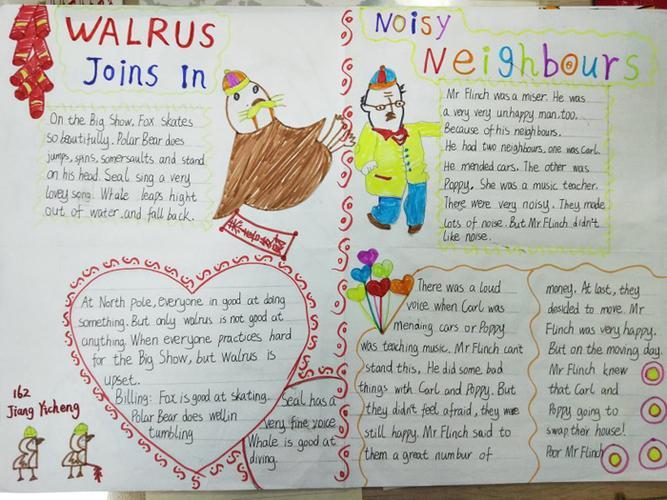 WALRUS
Joins In
On the Big Show, Fox skates
so beautifully. Polar Bear does
jumps, spins, somersaults and stand
on his head. Seal sing a very
lovey song. Whale leaps hight
out of water and fall back.
At North pole, everyone in good at doing
something. But only walrus is not good at
anything. When everyone practices hard
for the Big Show, but Walrus is
upset.
Billing: Fox is good at skating.
Polar Bear does well in
tumbling
Seal has a
very fine voice
Whale is good at
diving.
162
Jiang Yicheng
Noisy
Neighbours
Mr Flinch was a miser. He was
a very very unhappy man, too.
Because of his neighbours.
He had two neighbours. one was Carl.
He mended cars. The other was
Poppy. She was a music teacher.
There were very noisy. They made
lots of noise. But Mr Flinch didn't
like noise.
There was a loud
voice when Carl was
mending cars or Poppy
was teaching music. Mr Flinch can't
stand this, He did some bad
things with Carl and Poppy. But
they didn't feel afraid, they were
still happy. Mr Flinch said to
them a great number of
money. At last, they
decided to move. Mr
Flinch was very happy.
But on the moving day.
Mr Flinch knew
that Carl and
Poppy going to
swap their house!
Poor Mr Flinch